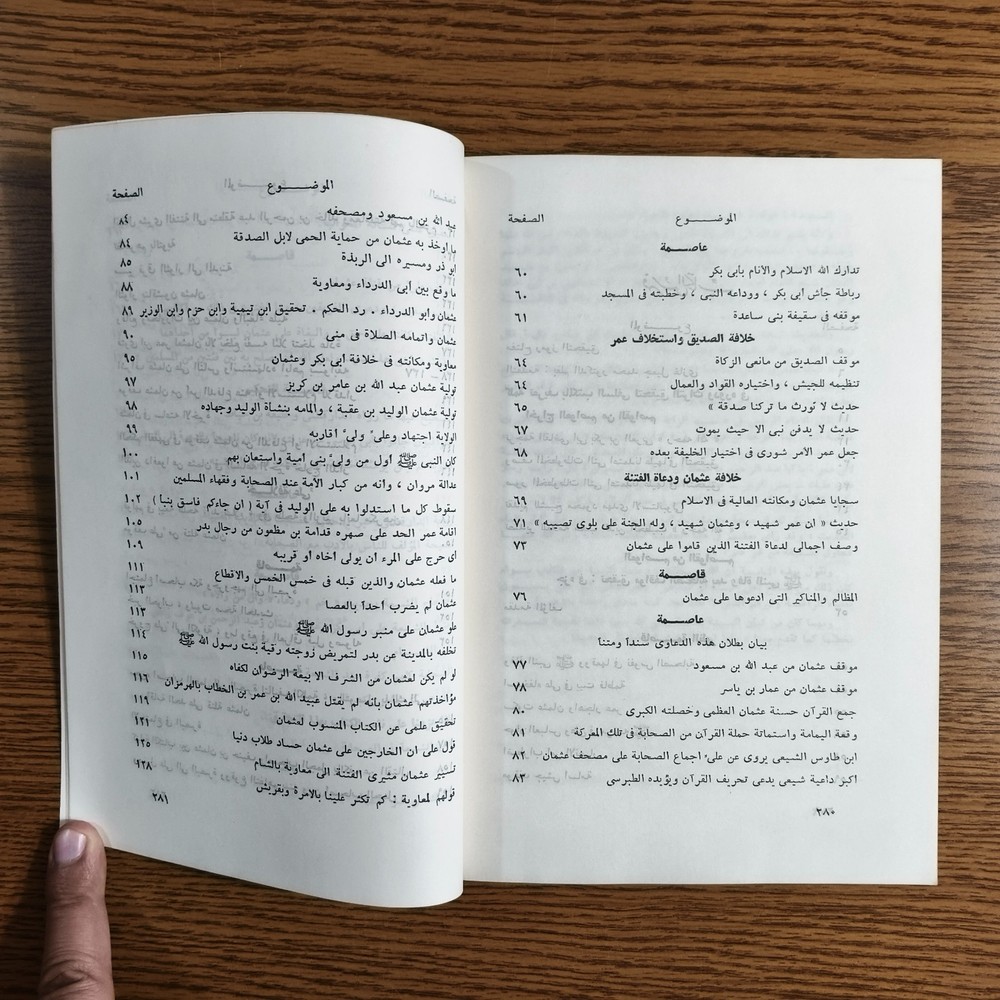 الموضـــــوع الصفحة
عاصـــمة
تدارك الله الاسلام والانام بأبى بكر ٦٠
رباطة جأش أبى بكر ، ووداعه النبى ، وخطبته فى المسجد ٦٠
موقفه فى سقيفة بنى ساعدة ٦١
خلافة الصديق واستخلاف عمر
موقف الصديق من مانعى الزكاة ٦٤
تنظيمه للجيش ، واختياره القواد والعمال ٦٤
حديث لا نورث ما تركنا صدقة » ٦٥
حديث لا يدفن نبى الا حيث يموت ٦٧
جعل عمر الأمر شورى فى اختيار الخليفة بعده ٦٨
خلافة عثمان ودعاة الفتنة
سجايا عثمان ومكانته العالية فى الاسلام ٦٩
حديث « ان عمر شهيد ، وعثمان شهيد ، وله الجنة على بلوى تصيبه » ٧١
وصف اجمالى لدعاة الفتنة الذين قاموا على عثمان ٧٣
قاصـــمة
المظالم والمناكير التى ادعوها على عثمان ٧٦
عاصـــمة
بيان بطلان هذه الدعاوى سندا ومتنا
موقف عثمان من عبد الله بن مسعود ٧٧
موقف عثمان من عمار بن ياسر ٧٨
جمع القرآن حسنة عثمان العظمى وخصلته الكبرى ٨٠
وقعة اليمامة واستماتة حملة القرآن من الصحابة فى تلك المعركة ٨١
ابن طاوس الشيعى يروى عن على اجماع الصحابة على مصحف عثمان ٨٢
اكبر داعية شيعى يدعى تحريف القرآن ويؤيده الطبرسى ٨٣
٣٨٠
الموضـــــوع الصفحة
عبد الله بن مسعود ومصحفه ٨٤
ما أوخذ به عثمان من حماية الحمى لابل الصدقة ٨٤
ابو ذر ومسيره الى الربذة ٨٥
ما وقع بين أبى الدرداء ومعاوية ٨٨
عثمان وأبو الدرداء . رد الحكم . تحقيق ابن تيمية وابن حزم وابن الوزير ٨٩
عثمان واتمامه الصلاة فى منى ٩٠
معاوية ومكانته فى خلافة أبى بكر وعثمان ٩٥
تولية عثمان عبد الله بن عامر بن كريز ٩٧
تولية عثمان الوليد بن عقبة ، والمامه بنشأة الوليد وجهاده ٩٨
الولاية اجتهاد وعلىّ ولىّ أقاربه ٩٩
كان النبى ﷺ أول من ولىّ بنى أمية واستعان بهم ١٠٠
عدالة مروان ، وأنه من كبار الأمة عند الصحابة وفقهاء المسلمين ١٠١
سقوط كل ما استدلوا به على الوليد فى آية ( ان جاءكم فاسق بنبأ ) ١٠٢
اقامة عمر الحد على صهره قدامة بن مظعون من رجال بدر ١٠٥
أى حرج على المرء أن يولى أخاه أو قريبه ١٠٩
ما فعله عثمان والذين قبله فى خمس الخمس والاقطاع ١١١
عثمان لم يضرب أحدا بالعصا ١١٢
علو عثمان على منبر رسول الله ﷺ ١١٣
تخلفه بالمدينة عن بدر لتمريض زوجته رقية بنت رسول الله ﷺ ١١٤
لو لم يكن لعثمان من الشرف الا بيعة الرضوان لكفاه ١١٥
مؤاخذتهم عثمان بأنه لم يقتل عبيد الله بن عمر بن الخطاب بالهرمزان ١١٦
تحقيق علمى عن الكتاب المنسوب لعثمان ١١٩
قول على ان الخارجين على عثمان حساد طلاب دنيا ١٢١
تسيير عثمان مثيرى الفتنة الى معاوية بالشام ١٢٥
قولهم لمعاوية : كم تكثر علينا بالامرة وبقريش ١٢٨
٣٨١